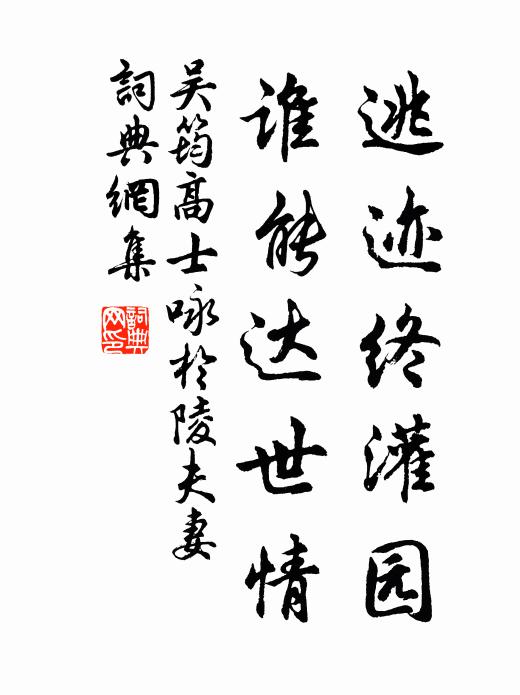 逃迹终灌园
谁能达世情
吴筠高士咏於陵夫妻
词典網集
詞典网印